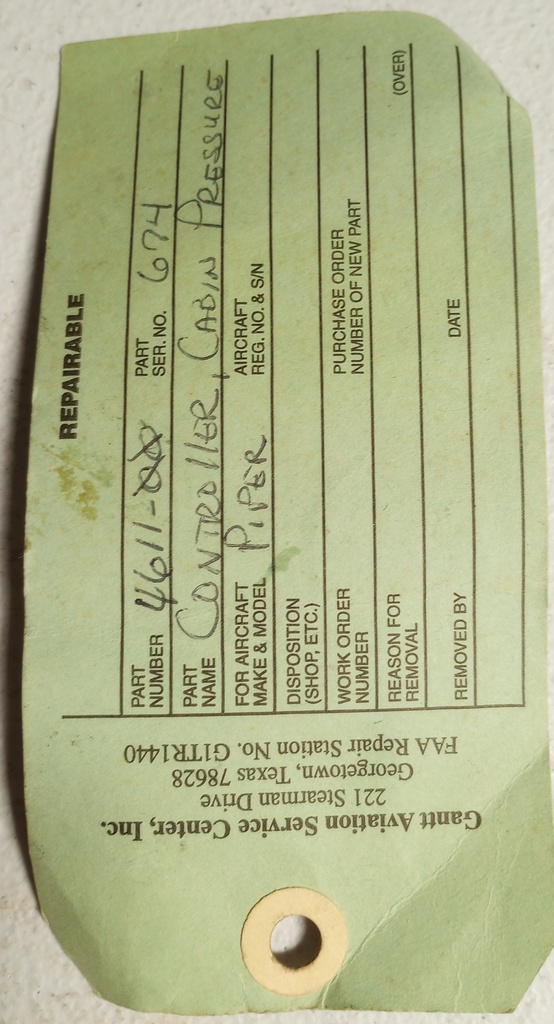 Gantt Aviation Service Center, Inc.
221 Stearman Drive
Georgetown, Texas 78628
FAA Repair Station No. G1TR1440
REPAIRABLE
PART NUMBER 4611- PART SER. NO. 674
PART NAME CONTROLLER, CABIN PRESSURE
FOR AIRCRAFT MAKE & MODEL PIPER AIRCRAFT REG. NO. & S/N
DISPOSITION (SHOP, ETC.)
WORK ORDER NUMBER PURCHASE ORDER NUMBER OF NEW PART
REASON FOR REMOVAL
REMOVED BY DATE
(OVER)